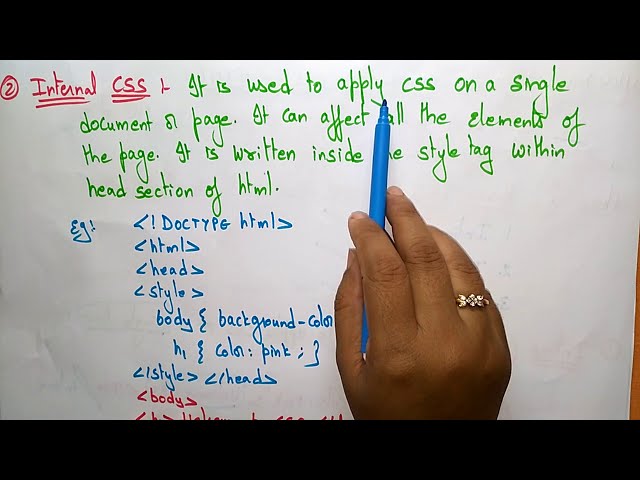 ② Internal CSS :- It is used to apply css on a single
document or page. It can affect all the elements of
the page. It is written inside the style tag within
head section of html.
Eg:
<!DOCTYPE html>
<html>
<head>
<style>
body { background-color
h1 { color: pink ; }
</style> </head>
<body>